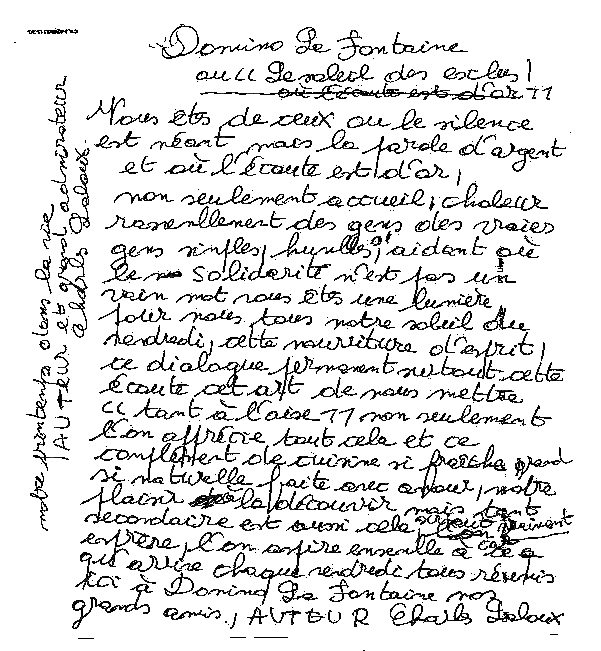 Domino Le Fontaine
ou " Le soleil des exclus !
où l'écoute est d'or "
Nous êts de ceux ou le silence
est néant mais la parole d'argent
et où l'écoute est d'or,
non seulement accueil, chaleur
rassenllement des gens des vraies
gens sinples, hunlles, s'aidant où
le solidarité n'est pas un
vain mot vous êts une lumière
pour nous tous notre soleil du
vendredi, cette nourriture d'esprit,
ce dialogue permanent surtout cette
écoute cet art de nous mettre
" tant à l'aise " non seulement
l'on apprécie tout cela et ce
complément de cuisine si fraîche grand
si naturelle faite avec amour, notre
plaisir la découvrir mais tant
secondaire est aussi cela
espère, l'on aspire ensenlle à ce
qu'arrive chaque vendredi tous réunis
ici à Domino Le Fontaine nos
grands amis, AUTEUR Charles Laloux
notre printents dans la vie
AUTEUR et grand admirateur
Charles Laloux.